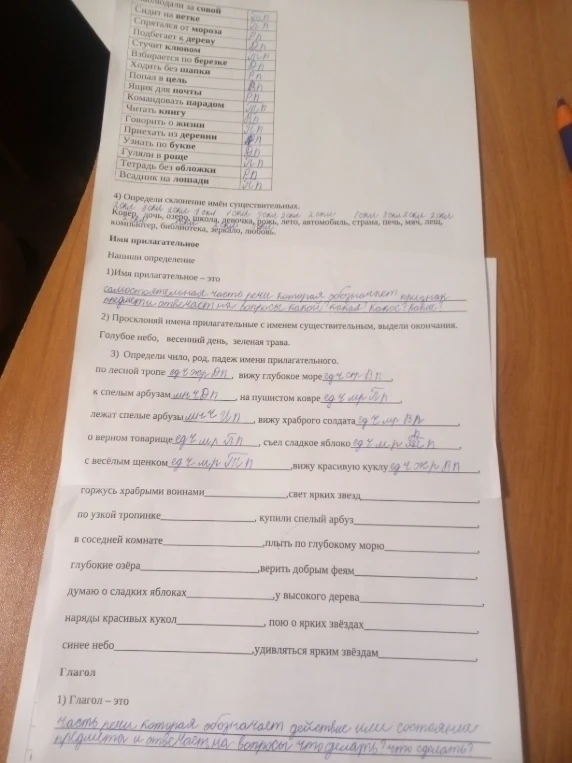 за совой
Сидит на ветке
Спрятался от мороза
Подбегает к дереву
Стучит клювом
Взбирается по березке
Ходить без шапки
Попал в цель
Ящик для почты
Командовать парадом
Читать книгу
Говорить о жизни
Приехать из деревни
Узнать по букве
Гуляли в роще
Тетрадь без обложки
Всадник на лошади
4) Определи склонение имён существительных.
Ковёр, дочь, озеро, школа, девочка, рожь, лето, автомобиль, страна, печь, мяч, лещ,
компьютер, библиотека, зеркало, любовь.
Имя прилагательное
Напиши определение
1)Имя прилагательное – это
самостоятельная часть речи которая обозначает признак
предмета отвечает на вопросы какой? какая? какое? какие?
2) Просклоняй имена прилагательные с именем существительным, выдели окончания.
Голубое небо, весенний день, зеленая трава.
3) Определи чило, род, падеж имени прилагательного.
по лесной тропе ед ч жр Дп , вижу глубокое море ед ч ср Вп ,
к спелым арбузам мн ч Дп , на пушистом ковре ед ч мр Пп ,
лежат спелые арбузы мн ч Ип , вижу храброго солдата ед ч мр Вп ,
о верном товарище ед ч мр Пп , съел сладкое яблоко ед ч мр
с весёлым щенком ед ч мр Тп ,вижу красивую куклу ед ч жр Вп ,
горжусь храбрыми воинами ,свет ярких звезд ,
по узкой тропинке , купили спелый арбуз ,
в соседней комнате ,плыть по глубокому морю ,
глубокие озёра ,верить добрым феям ,
думаю о сладких яблоках ,у высокого дерева ,
наряды красивых кукол , пою о ярких звёздах ,
синее небо ,удивляться ярким звёздам ,
Глагол
1) Глагол – это
часть речи которая обозначает действие или состояние
предмета и отвечает на вопросы что делать? что сделать?